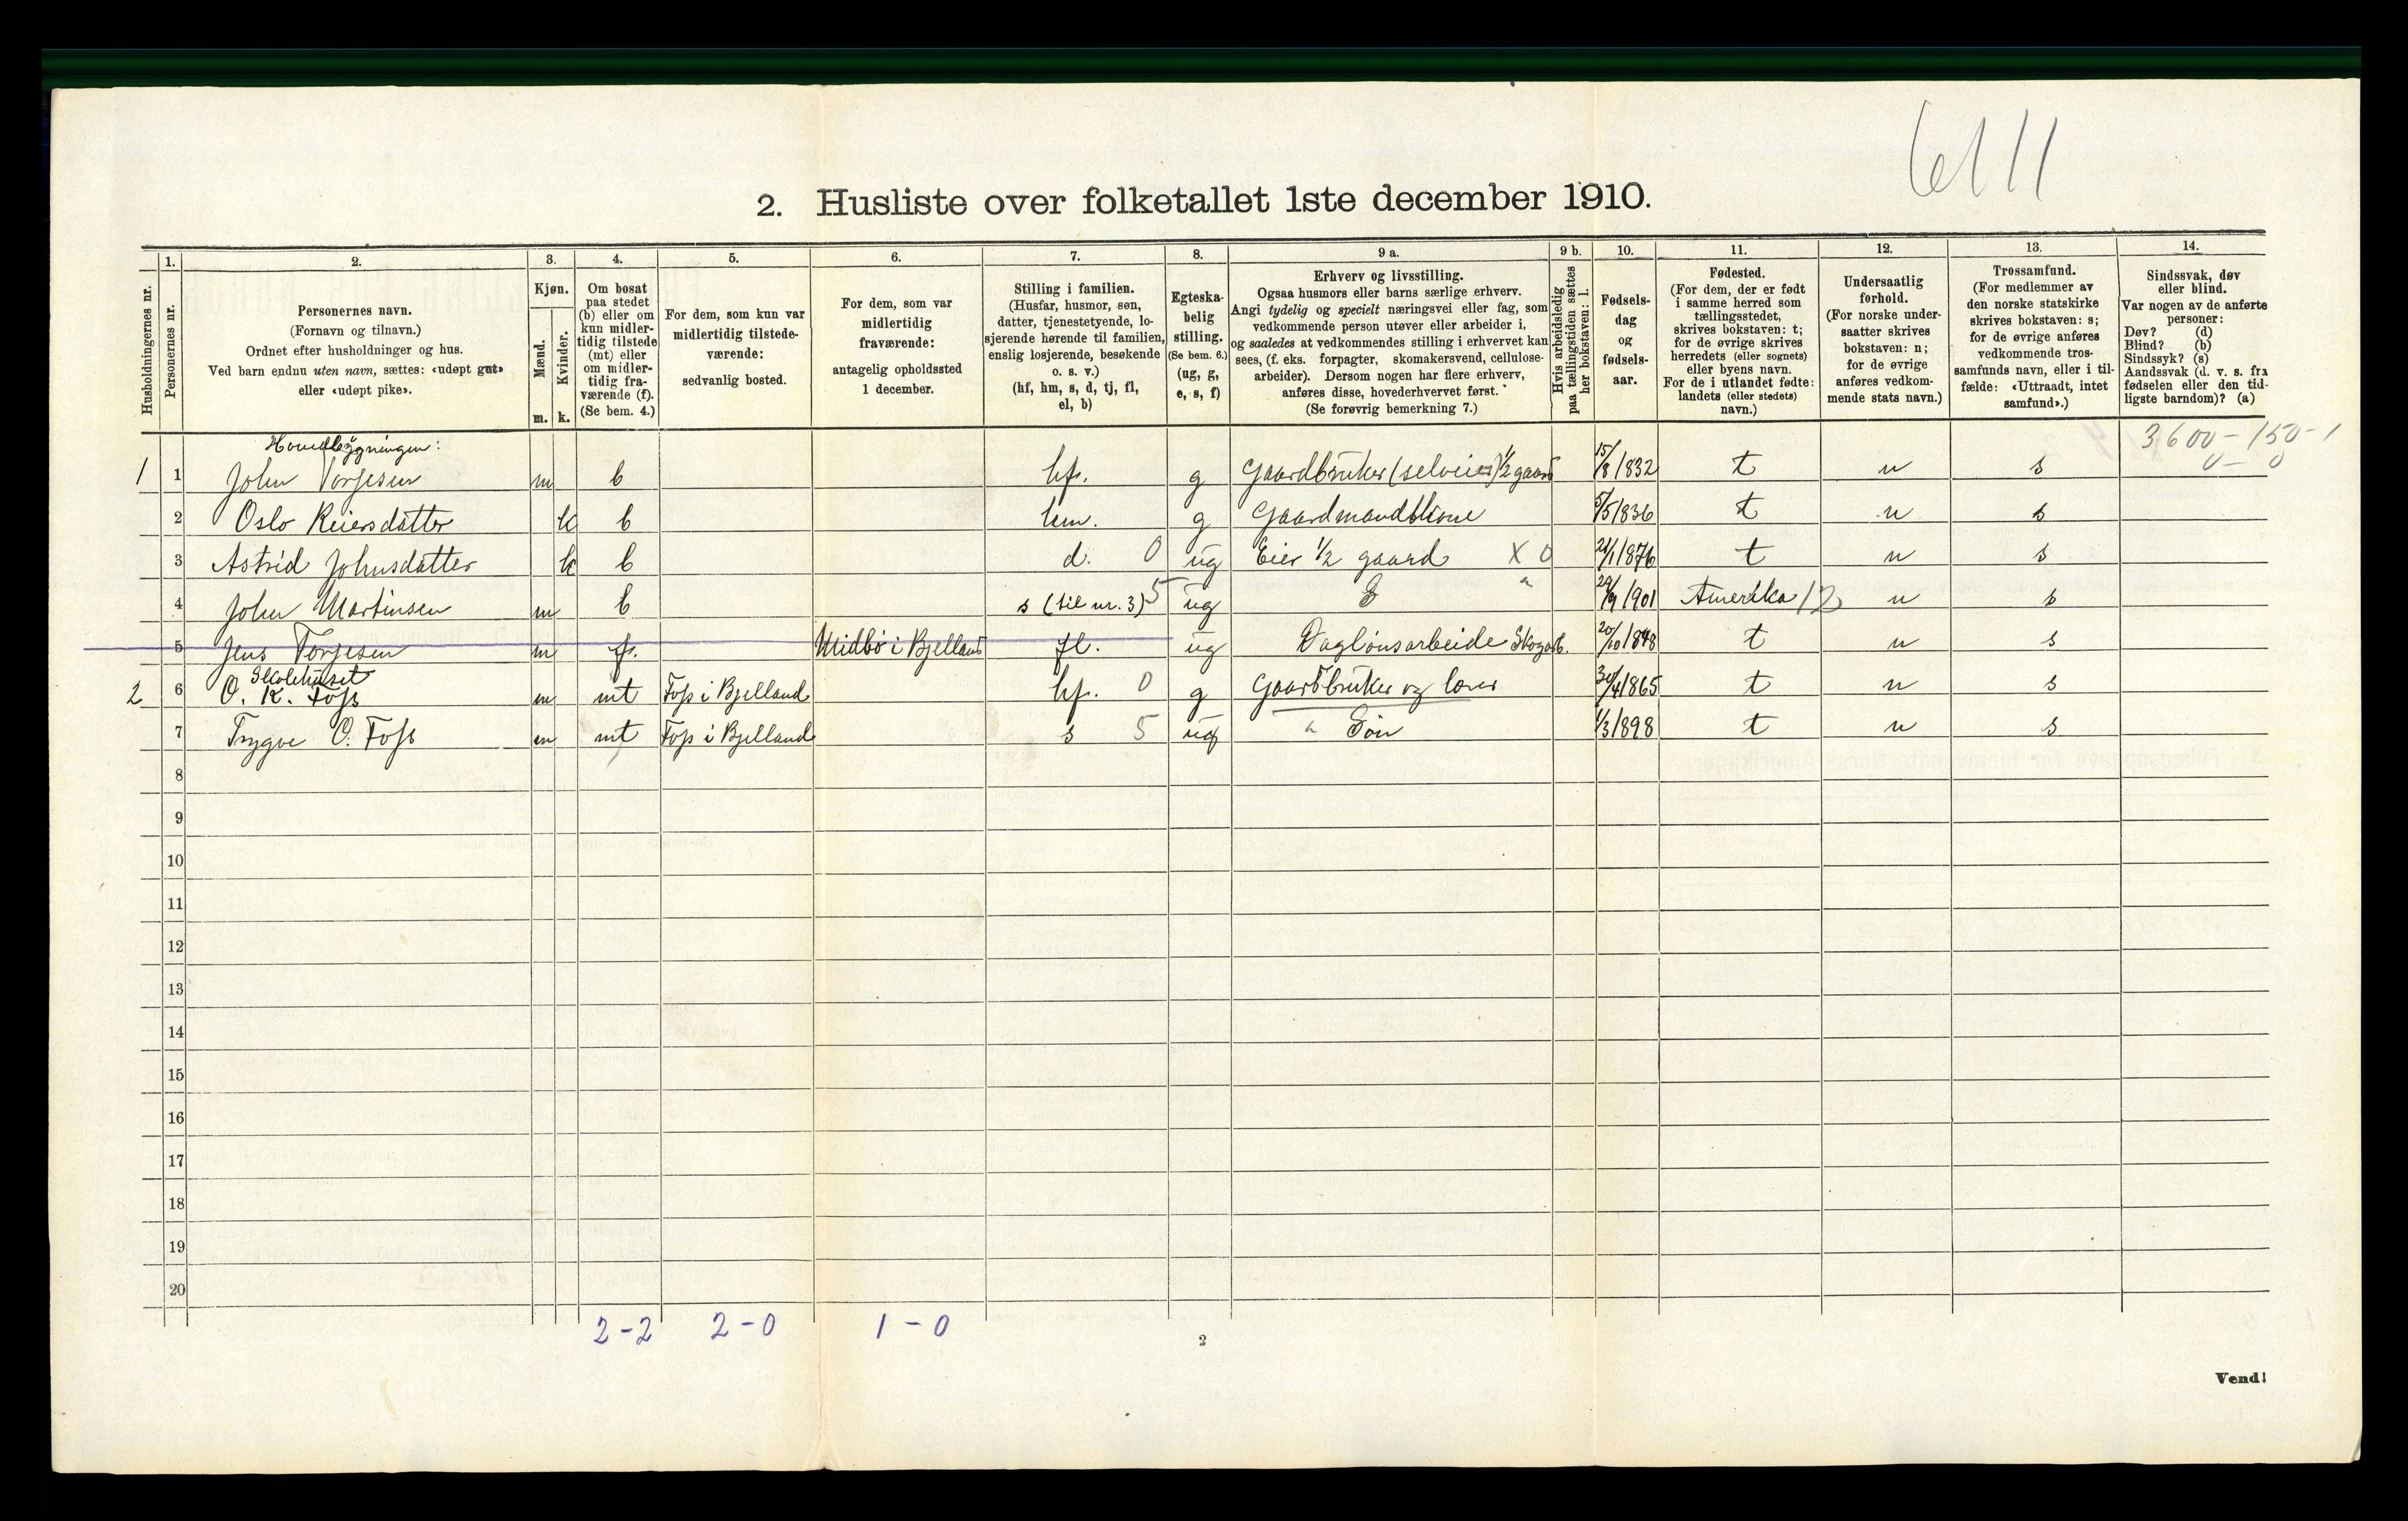 6111
2. Husliste over folketallet 1ste december 1910.
Husholdningernes nr.
1.
Personernes nr.
2.
Personernes navn.
(Fornavn og tilnavn.)
Ordnet efter husholdninger og hus.
Ved barn endnu uten navn, sættes: «udøpt gut»
eller «udøpt pike».
3.
Kjøn.
Mænd.
m.
Kvinder.
k.
4.
Om bosat
paa stedet
(b) eller om
kun midler-
tidig tilstede
(mt) eller
om midler-
tidig fra-
værende (f).
(Se bem. 4.)
5.
For dem, som kun var
midlertidig tilstede-
værende:
sedvanlig bosted.
6.
For dem, som var
midlertidig
fraværende:
antagelig opholdssted
1 december.
7.
Stilling i familien.
(Husfar, husmor, søn,
datter, tjenestetyende, lo-
sjerende hørende til familien,
enslig losjerende, besøkende
o. s. v.)
(hf, hm, s, d, tj, fl,
el, b)
8.
Egteska-
belig
stilling.
(Se bem. 6.)
(ug, g,
e, s, f)
9 a.
Erhverv og livsstilling.
Ogsaa husmors eller barns særlige erhverv.
Angi tydelig og specielt næringsvei eller fag, som
vedkommende person utøver eller arbeider i,
og saaledes at vedkommendes stilling i erhvervet kan
sees, (f. eks. forpagter, skomakersvend, cellulose-
arbeider). Dersom nogen har flere erhverv,
anføres disse, hovederhvervet først.
(Se forøvrig bemerkning 7.)
9 b.
Hvis arbeidsledig
paa tællingstiden sættes
her bokstaven: l.
10.
Fødsels-
dag
og
fødsels-
aar.
11.
Fødested.
(For dem, der er født
i samme herred som
tællingsstedet,
skrives bokstaven: t;
for de øvrige skrives
herredets (eller sognets)
eller byens navn.
For de i utlandet fødte:
landets (eller stedets)
navn.)
12.
Undersaatlig
forhold.
(For norske under-
saatter skrives
bokstaven: n;
for de øvrige
anføres vedkom-
mende stats navn.)
13.
Trossamfund.
(For medlemmer av
den norske statskirke
skrives bokstaven: s;
for de øvrige anføres
vedkommende tros-
samfunds navn, eller i til-
fælde: «Uttraadt, intet
samfund».)
14.
Sindssvak, døv
eller blind.
Var nogen av de anførte
personer:
Døv? (d)
Blind? (b)
Sindssyk? (s)
Aandssvak (d. v. s. fra
fødselen eller den tid-
ligste barndom)? (a)
3600 - 150 - 1
0 - 0
Hovedbygningen:
1 1 John Torjesen m b hf. g Gaardbruker (selveier) 1/2 gaard 15/8 1832 t n s
2 Oslo Reiersdatter k b hm. g Gaardmandskone 5/5 1836 t n s
3 Astrid Johnsdatter k b d. 0 ug Eier 1/2 gaard X 0 21/1 1876 t n s
4 John Martinsen m b s (til nr. 3) 5 ug S " 29/9 1901 Amerika n s
5 Jens Torjesen m f. Midbö i Bjelland fl. ug Daglönsarbeide Skogarb. 20/10 1848 t n s
Skolehuset
2 6 O. K. Foss m mt Foss i Bjelland hf. 0 g Gaardbruker og lærer 30/4 1865 t n s
7 Trygve O. Foss m mt Foss i Bjelland s 5 ug " Sön 1/3 1898 t n s
8
9
10
11
12
13
14
15
16
17
18
19
20
2-2 2-0 1-0
2
Vend!